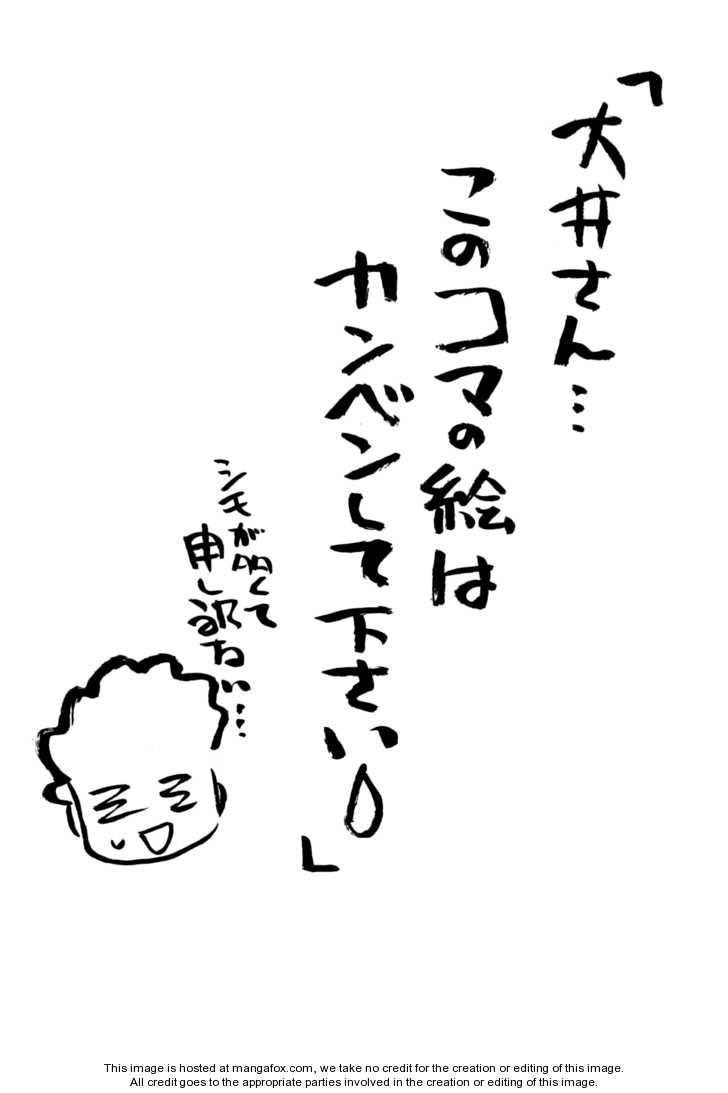 「大井さん…
このコマの絵は
カンベンして下さい」
シモが多くて
申し訳ない…
This image is hosted at mangafox.com, we take no credit for the creation or editing of this image.
All credit goes to the appropriate parties involved in the creation or editing of this image.